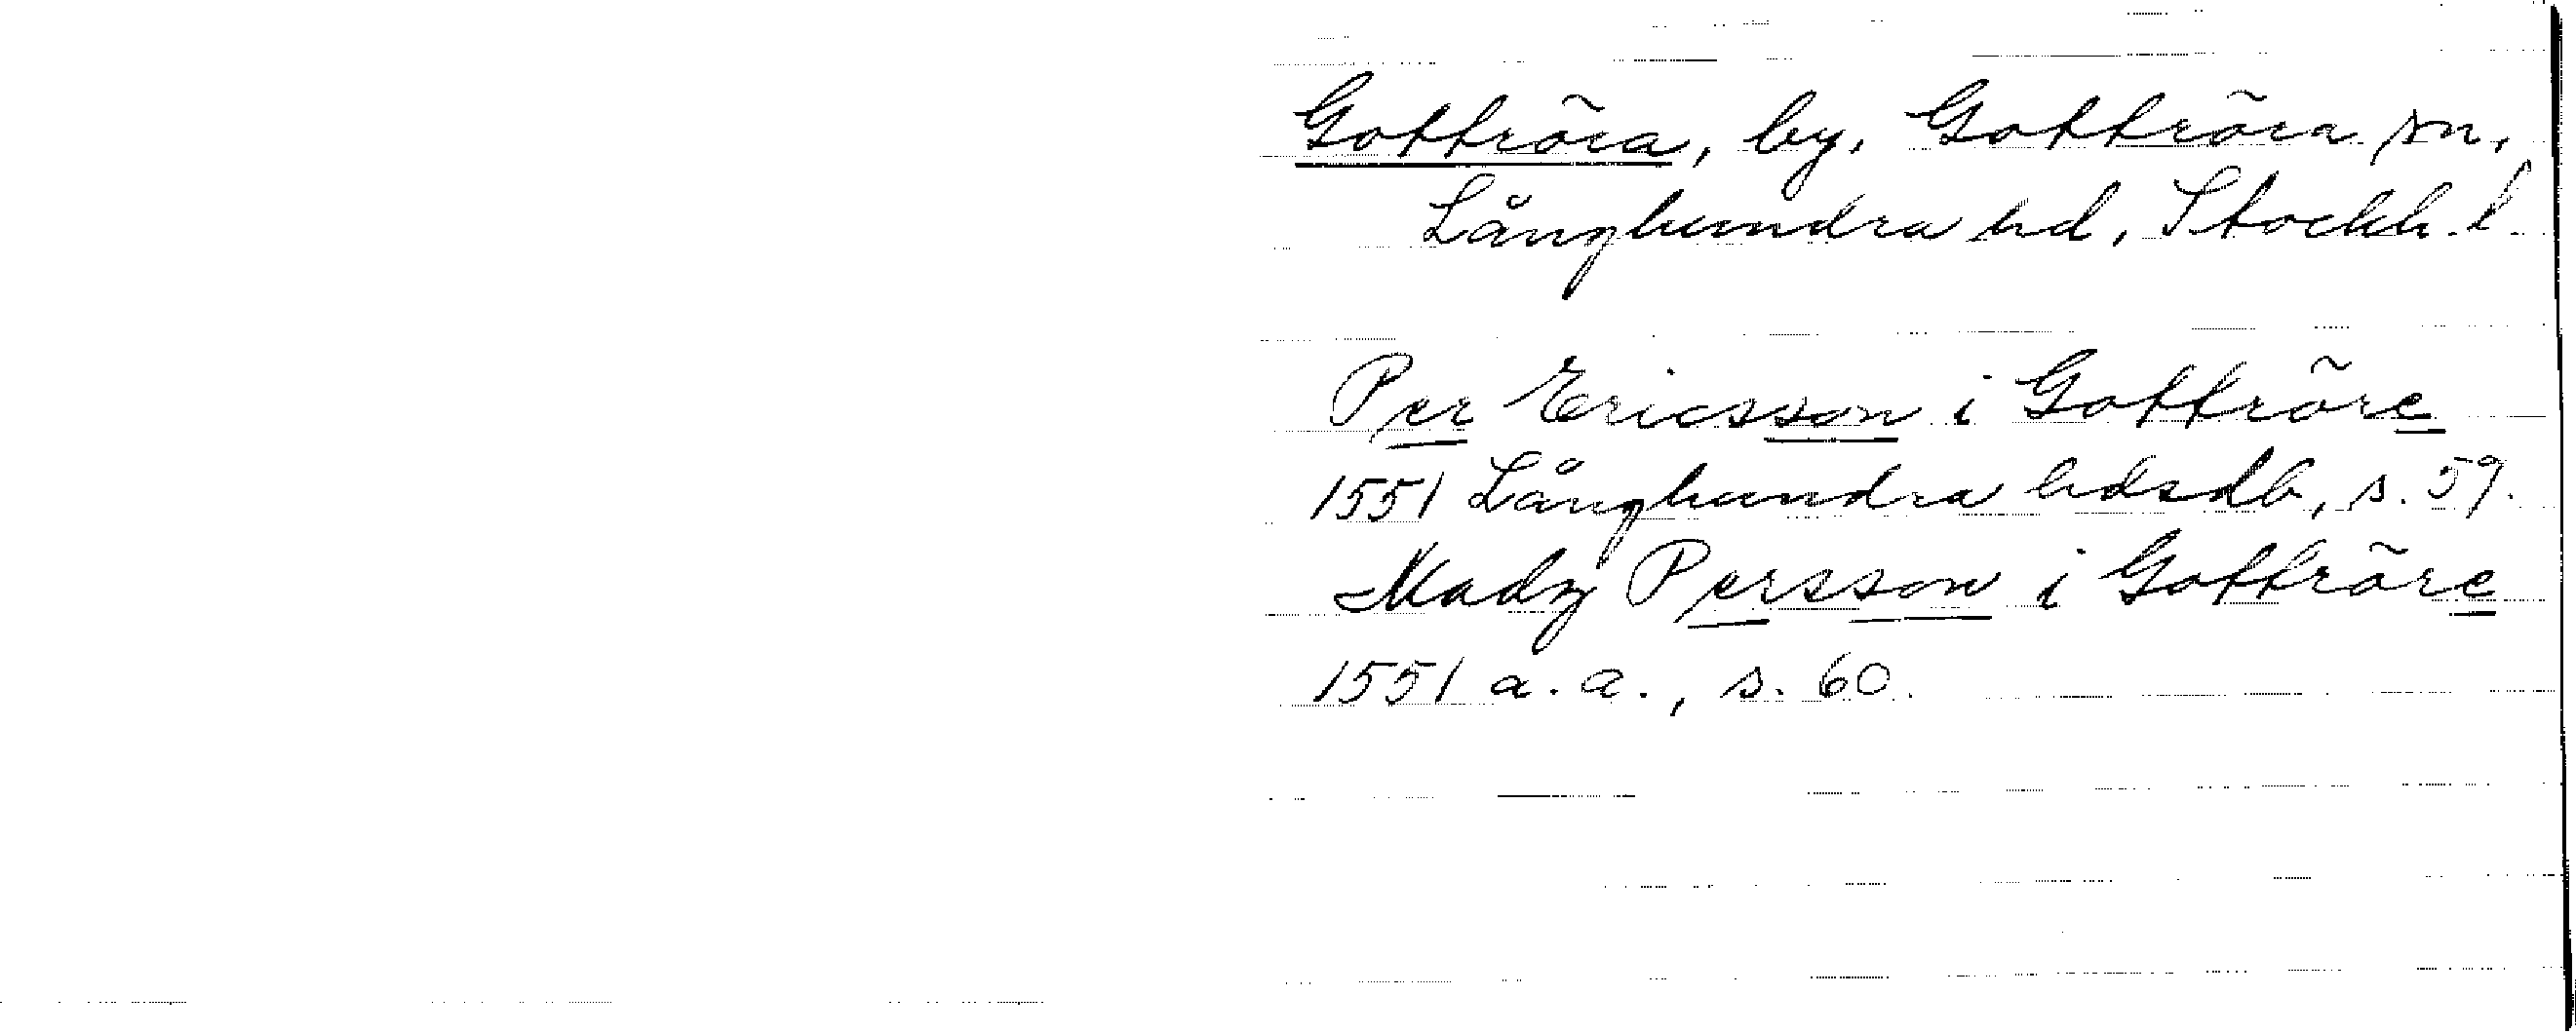 Gottröra, by, Gottröra sn,
Långhundra hd, Stockh. l
Per Ericsson i Gottröre
1551 Långhundra hdsdb, s. 59.
Madz Persson i Gottröre
1551 a. a., s. 60.